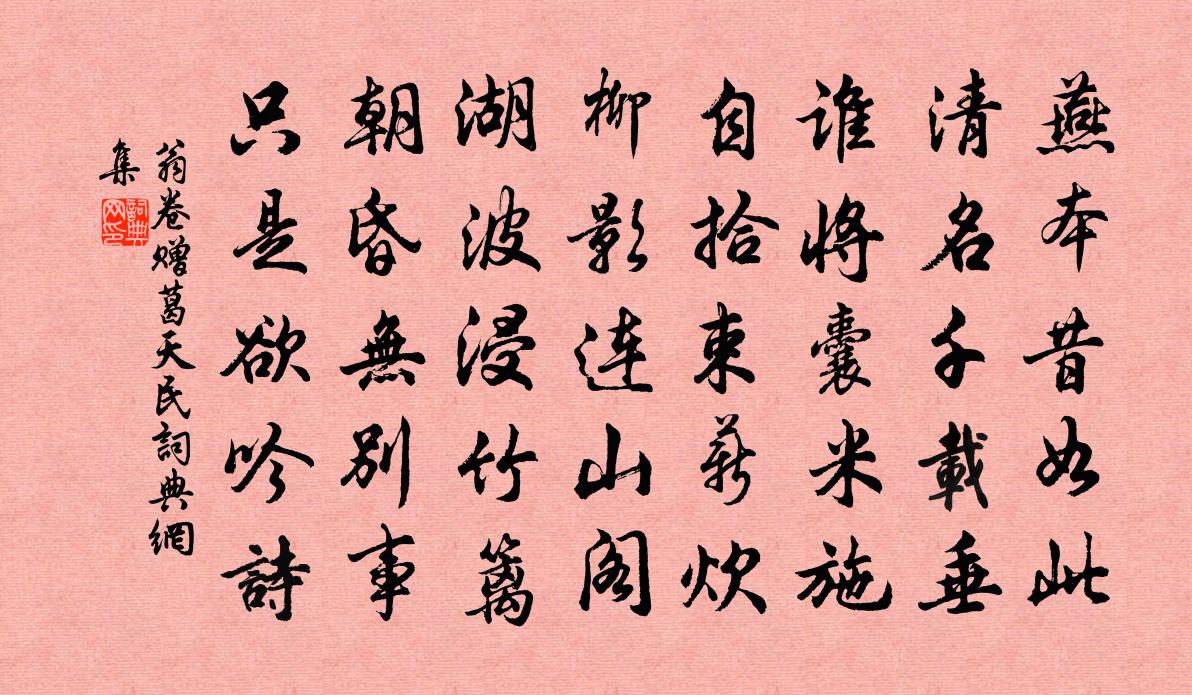 燕本昔如此
清名千載垂
誰將囊米施
自拾束薪炊
柳影连山阁
湖波浸竹籬
朝昏無别事
只是欲吟詩
翁卷赠葛天民詞典網
集
詞典網印